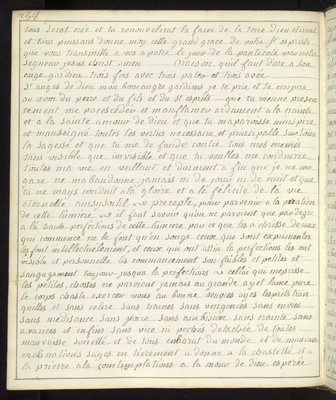 tous serat née et tu renouvelerat la face de la terre dieu eternel
et tous puissans donne moy cette grand grace de votre st esprits
que vous transmitte a vos apotre le jour de la pantecote par notre
segneur jesus christ amen oraison quil faut dire a son
ange gardien trois fois avec trois pater et trois avec
st anges de dieu mon bon anges gardiens je te prie et te conjure
au nom du pere et du fils et du st esprit que tu vienne presse
et a la sainte amour de dieu et que tu maparoisse
et manseigné toutes les vertus necessaire et principalle sur tous
la sagesse et que tu me de fande contre tous mes enemis
tans visible que invisible et que tu veuille me conduire
toutes ma vie en veillant et durment a fin que je ne
gare ne mabandonne jamais ni de jour ni de nuit et que
tu me mays conduit a la gloire et a la félicité de la vie
eternelle ainsy soitil precepte pour parvenir a la
de cette lumiere il faut savoir quon ne parvient que par degre
a la haute perfections de cette lumiere par ce que les
qui commence ne le font qu'en songe ceux qui sont
le font intellectuellement et ceux qui ont atint la perfections les ont
visible et personnelle les commancement son faibles et petites et
saugmentent toujour jusqua la perfections celui qui meprisse
les petites choses ne parvient jamais au grande ayet lame pure
le corps chaste exercer vous au bonne soyés ayes lesprit tran
quilles et sans colere sans haines sans vengences sans envies
sans medisance sans gloire sans ambitions sans crainte sans
avarices et enfins sans vice ni pechés detachée de toutes
mauvaise societté et de tous embaras du monde et de mauvaise
inclinations sages en tierement a donné a la chastetté et a
la prierre a la contemplations a la mour de dieu esperée